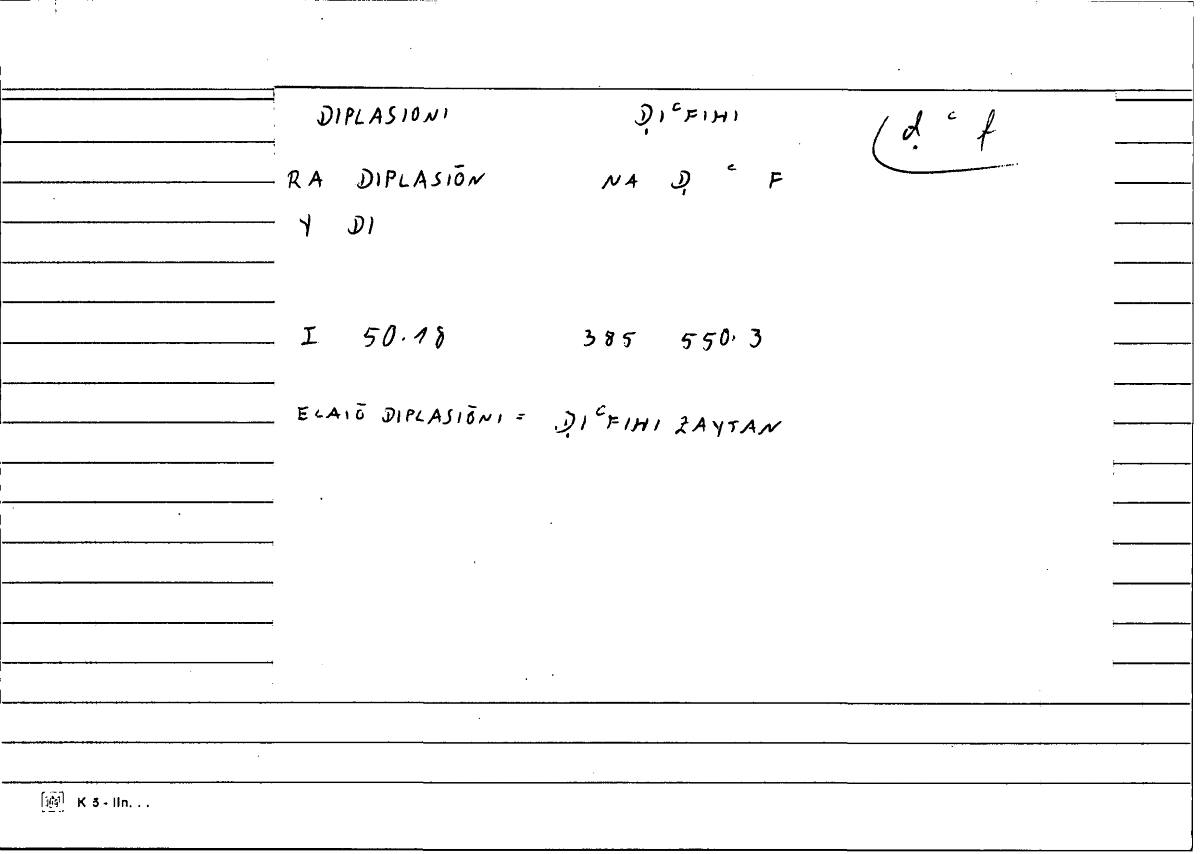 DIPLASIONI Ḍı͑FIHI ḍ ͨ f
RA DIPLASIŌN NA Ḍ ͨ F
Y DI
I 50.18 385 550.3
ELAIŌ DIPLASIŌNI = ḌIᶜFIHI ZAYTAN
K 5 - IIn. . .